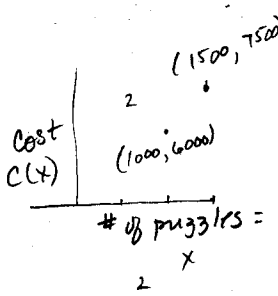 (1500, 7500)
2
Cost
C(x)
(1000, 6000)
# of puzzles =
x
2